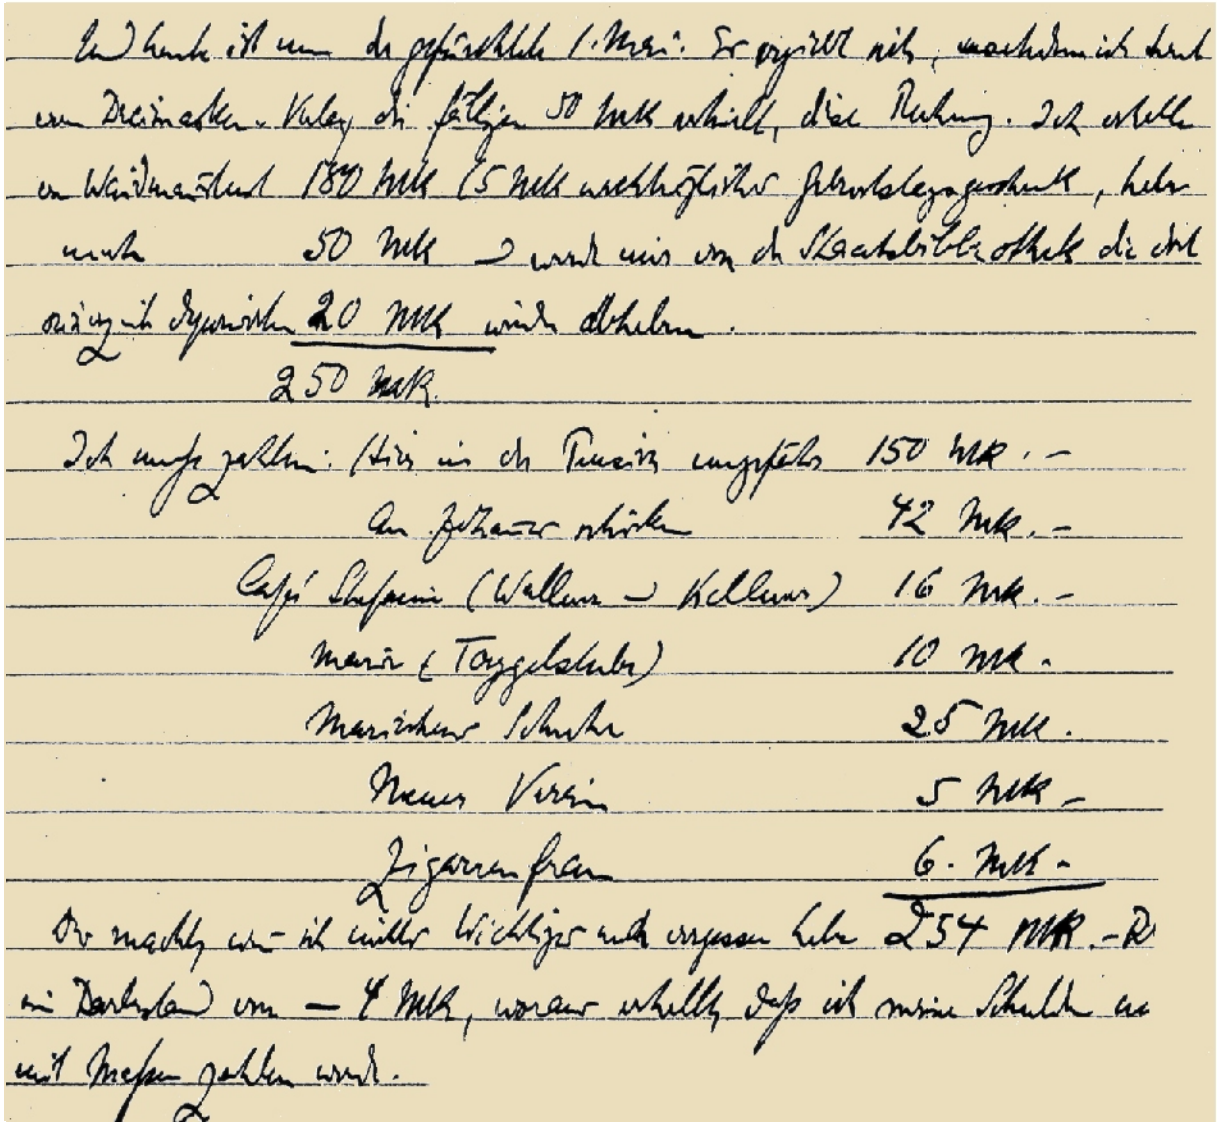 Und heute ist nun der gefürchtete 1. Mai. Er ergiebt sich, nachdem ich heut
vom Dreimasken-Verlag die fälligen 50 Mk erhielt, diese Rechnung. Ich erhielt
von Waidmannslust 180 Mk (5 Mk nachträgliches Geburtstagsgeschenk, habe
50 Mk und werde mir von der Staatsbibliothek die dort
20 Mk wieder abheben.
250 Mk.
Ich muß zahlen: Hier in der Pension ungefähr 150 Mk. –
An schicken 42 Mk. –
Café Stefanie (Wallner und Kellner) 16 Mk. –
Marie (Torggelstube) 10 Mk.
Mariechens Schuhe 25 Mk.
Neuer Verein 5 Mk –
Zigarrenfrau 6. Mk –
Das macht, wenn ich nichts Wichtiges noch vergessen habe 254 Mk. –
ein von – 4 Mk, woraus erhellt, daß ich meine Schulden
mit Maßen zahlen werde.